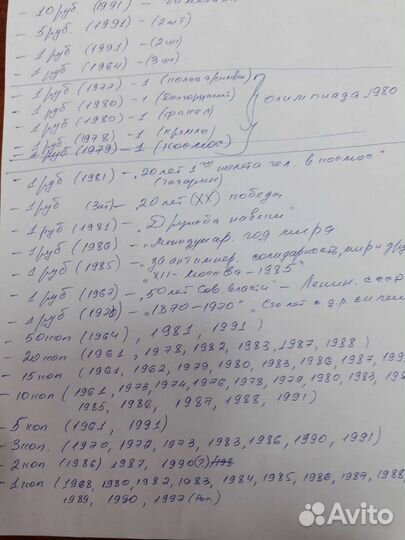 - 10 руб. (1991) -
- 5 руб (1991) - (2шт)
- 1 руб (1991) - (2шт)
- 1 руб (1964) - (3шт)
- 1 руб (1977) - 1 (кольца/эмблема)
- 1 руб (1980) - 1 (Долгорукий)
- 1 руб (1980) - 1 (факел)
- 1 руб (1978) - 1 (кремль)
- 1 руб (1979) - 1 (космос)
Олимпиада 1980
- 1 руб (1981) - "20 лет 1го полета чел. в космос"
(Гагарин)
- 1 руб (3шт) - 20 лет (XX) победы
- 1 руб (1981) - "Дружба навеки"
- 1 руб (1986) - "Междунар. год мира
- 1 руб (1985) - "за антиимпер. солидарность, мир и друж
"XII - Москва - 1985"
- 1 руб (1967) - "50 лет Сов. власти" - Ленин. ссср
- 1 руб (1970) - "1870-1970" "Сто лет с д.р.
- 50 коп (1964), 1981, 1991)
- 20 коп (1961, 1978, 1982, 1983, 1987, 1988)
- 15 коп (1961, 1962, 1979, 1980, 1983, 1986, 1987, 199
- 10 коп (1961, 1973, 1974, 1976, 1978, 1979, 1980, 1983, 198
1985, 1986, 1987, 1988, 1991)
- 5 коп (1961, 1991)
- 3 коп. (1970, 1972, 1973, 1983, 1986, 1990, 1991)
- 2 коп (1986) 1987, 1990(?)
- 1 коп (1968, 1980, 1982, 1983, 1984, 1985, 1986, 1987, 1988,
1989, 1990, 1997 (Рос.)
Avito